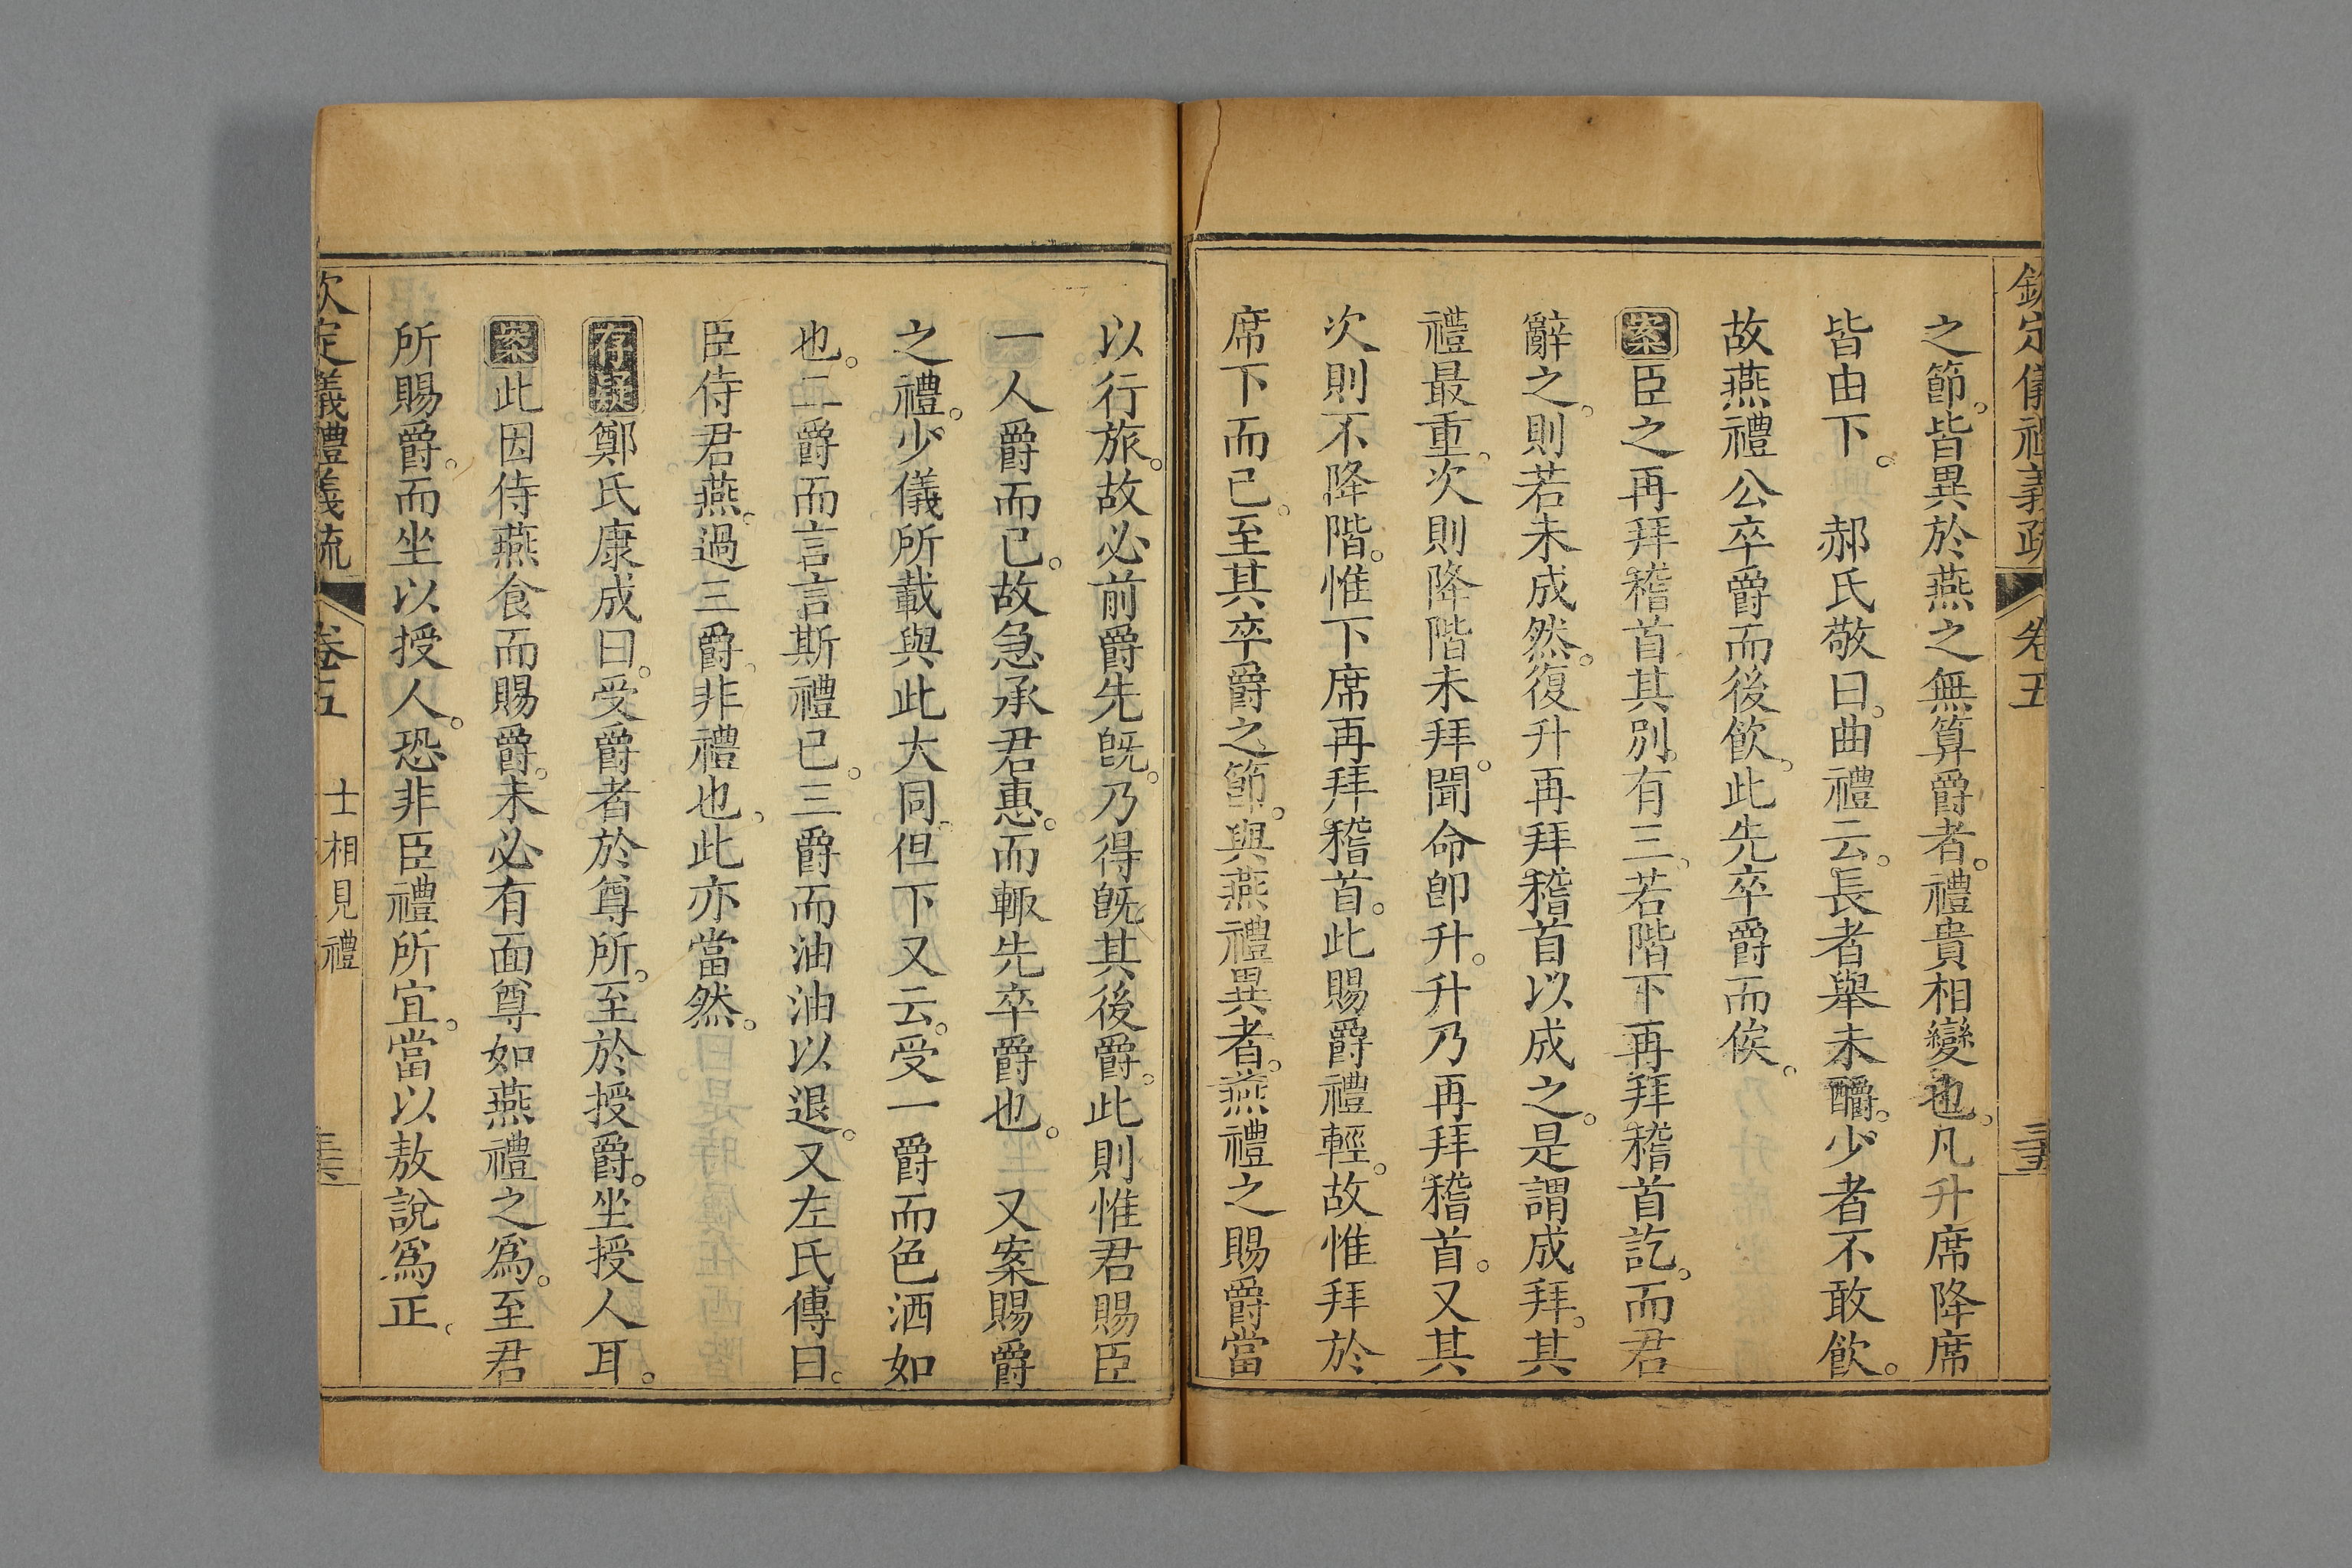 欽定儀禮義疏 卷五 三五
之節。皆異於燕之無算爵者。禮貴相變也。凡升席降席
皆由下。 郝氏敬曰。曲禮云。長者舉未釂。少者不敢飲。
故燕禮公卒爵而後飲。此先卒爵而俟。
案臣之再拜稽首其別。有三。若階下再拜稽首訖。而君
辭之。則若未成然。復升再拜稽首以成之。是謂成拜。其
禮最重。次則降階未拜。聞命卽升。升乃再拜稽首。又其
次則不降階。惟下席再拜稽首。此賜爵禮輕。故惟拜於
席下而已。至其卒爵之節。與燕禮異者。燕禮之賜爵當
以行旅。故必前爵先旣。乃得旣其後爵。此則惟君賜臣
一人爵而已。故急承君惠。而輙先卒爵也。 又案賜爵
之禮。少儀所載與此大同。但下又云。受一爵而色洒如
也。二爵而言言斯禮已。三爵而油油以退。又左氏傳曰。
臣侍君燕。過三爵。非禮也。此亦當然。
存疑鄭氏康成曰。受爵者於尊所。至於授爵。坐授人耳。
案此因侍燕食而賜爵。未必有面尊如燕禮之爲。至君
所賜爵。而坐以授人。恐非臣禮所宜。當以敖說爲正。
欽定儀禮義疏 卷五 士相見禮